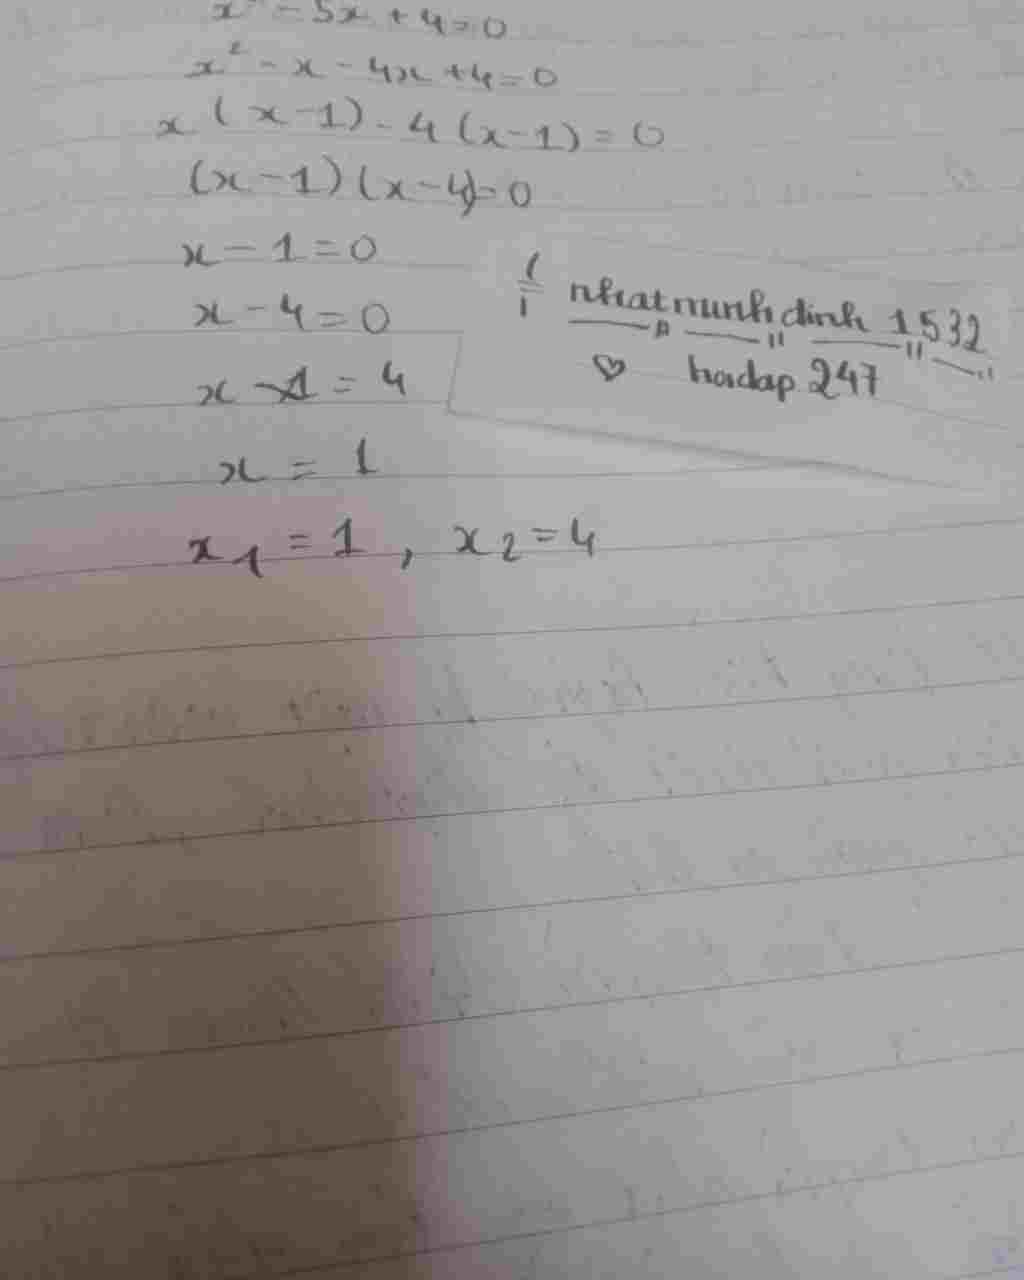 x² - 5x + 4 = 0
x² - x - 4x + 4 = 0
x (x - 1) - 4 (x - 1) = 0
(x - 1) (x - 4) = 0
x - 1 = 0
x - 4 = 0
x = 4
x = 1
x₁ = 1 , x₂ = 4
nhatminhdinh 1532
hoidap 247